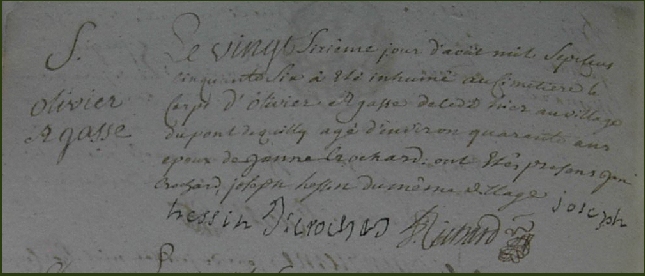 S.
olivier
Rgasse
Le vingt sixieme jour d'aoët mil sept cens
cinquante six à été inhumé au Cimetiere le
Corps d'olivier Rgasse decedé hier au village
du pont de quilly agé d'environ quarante ans
epoux de Janne Crochard, ont étés presens
Crochard, joseph hessin du même village joseph
hessin Crochard Richard